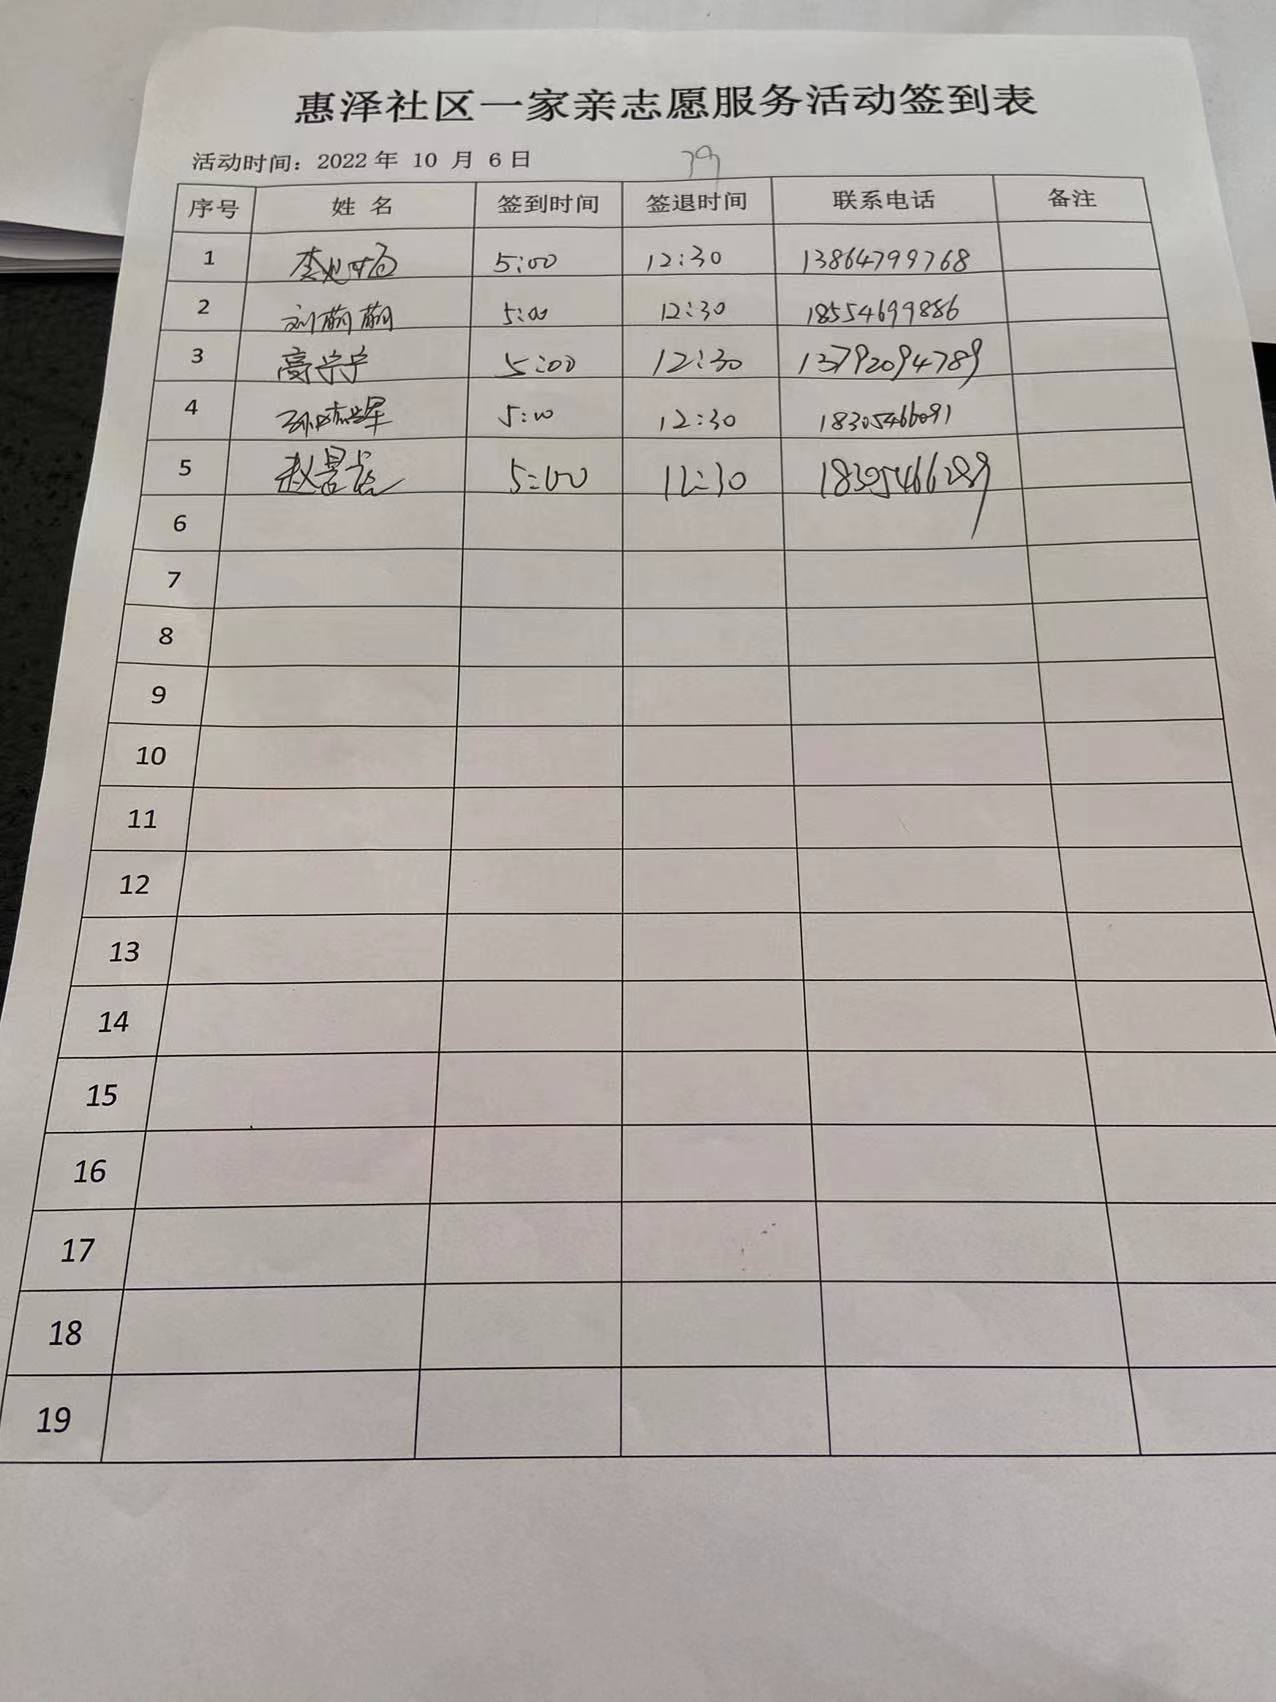 惠泽社区一家亲志愿服务活动签到表
活动时间：2022 年 10 月 6 日
序号 姓 名 签到时间 签退时间 联系电话 备注
1 李 5:00 12:30 13864799768
2 刘萌萌 5:00 12:30 18554699886
3 高宁宁 5:00 12:30 13792094789
4 5:00 12:30 18305466091
5 赵 5:00 12:30
6
7
8
9
10
11
12
13
14
15
16
17
18
19